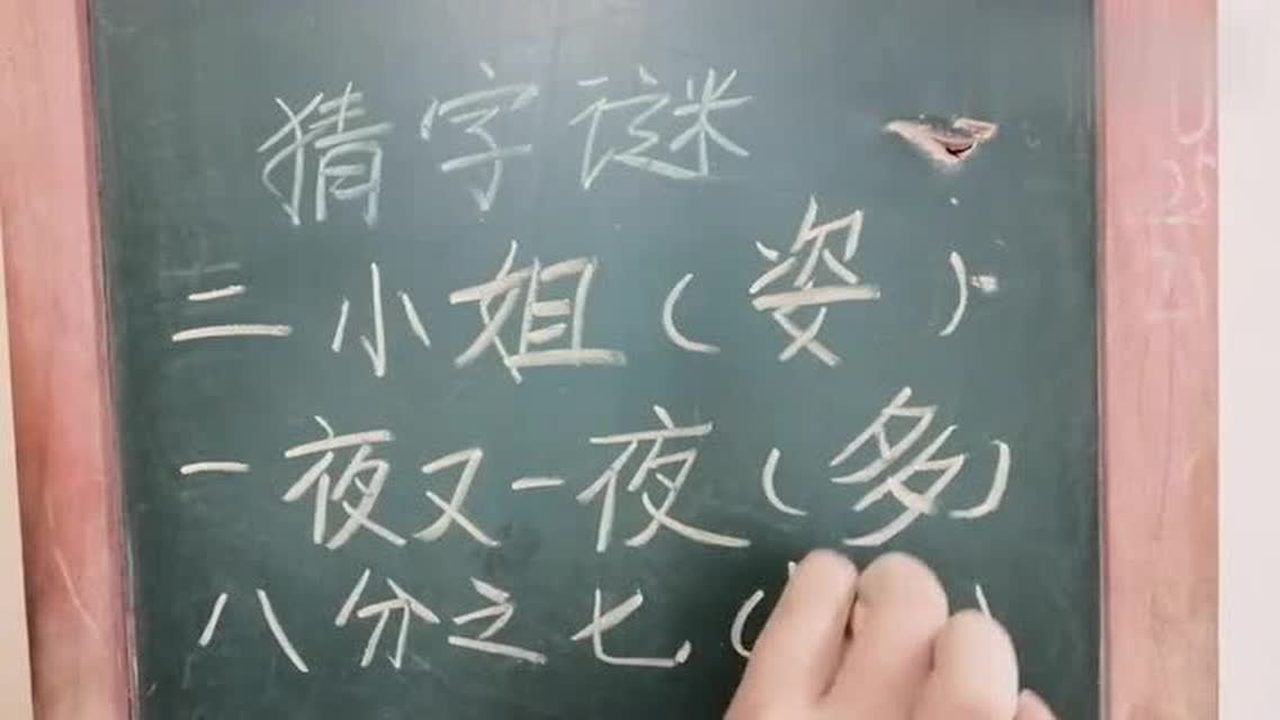 猜字谜
二小姐(姿)
一夜又一夜(多)
八分之七(